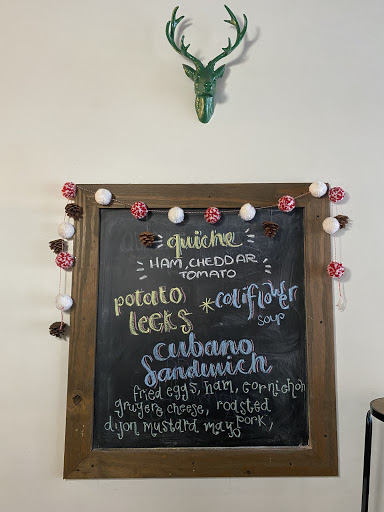 quiche
HAM, CHEDDAR
TOMATO
potato *califlower
leeks soup
cubano
Sandwich
fried eggs, ham, cornichon
gruyere cheese, roasted
dijon mustard mayo pork,